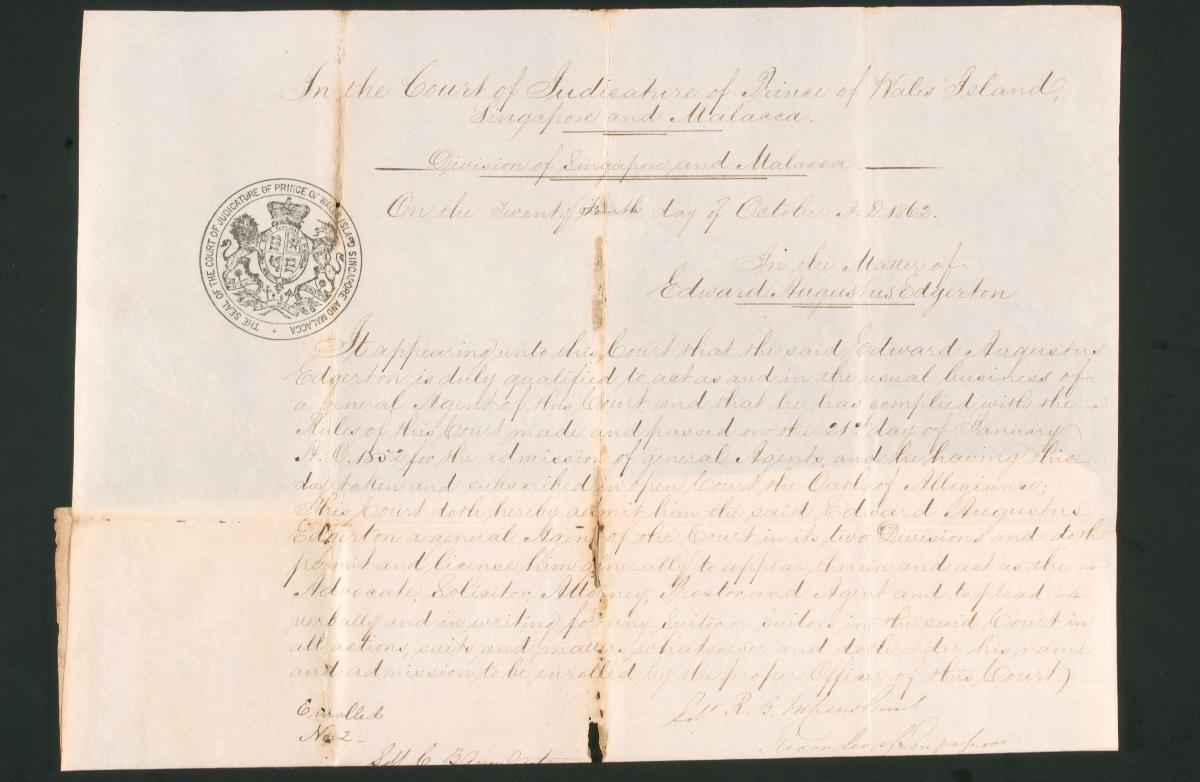 In the Court of Judicature of Prince of Wales Island,
Singapore and Malacca.
Division of Singapore and Malacca
On the Twenty day of October A.D. 1862.
THE SEAL OF THE COURT OF JUDICATURE OF PRINCE OF WALES ISLAND SINGAPORE AND MALACCA
In the Matter of
Edward Augustus Edgerton
It appearing unto this Court that the said Edward Augustus
Edgerton is duly qualified to act as and in the usual business of
a general Agent of this Court and that he has complied with the
Rules of this Court made and passed on the 21st day of January
A.D. 1852 for the admission of general Agents and he having this
day taken and subscribed in open Court the Oath of Allegiance;
This Court doth hereby admit him the said Edward Augustus
Edgerton a general Agent of the Court in its two Divisions and doth
permit and license him generally to appear therein and act as the
Advocate, Solicitor, Attorney, Proctor and Agent and to plead
verbally and in writing for any Suitor or Suitors in the said Court in
all actions, suits and matters whatsoever and doth order his name
and admission to be enrolled by the proper Officer of this Court)
Enrolled
No. 2
R. B.
Recorder of Singapore